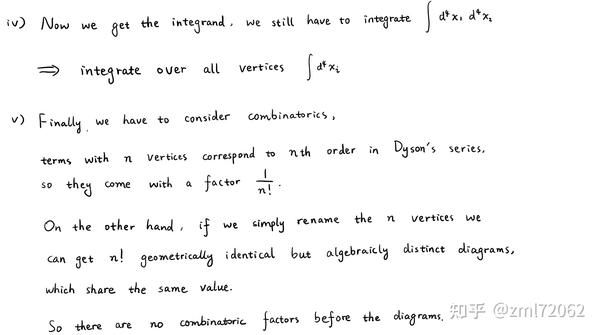 iv) Now we get the integrand, we still have to integrate ∫ d⁴x₁ d⁴x₂
⇒ integrate over all vertices ∫ d⁴xᵢ
v) Finally, we have to consider combinatorics,
terms with n vertices correspond to nth order in Dyson's series,
so they come with a factor 1/n!.
On the other hand, if we simply rename the n vertices we
can get n! geometrically identical but algebraicly distinct diagrams,
which share the same value.
So there are no combinatoric factors before the diagrams.
知乎 @zml72062